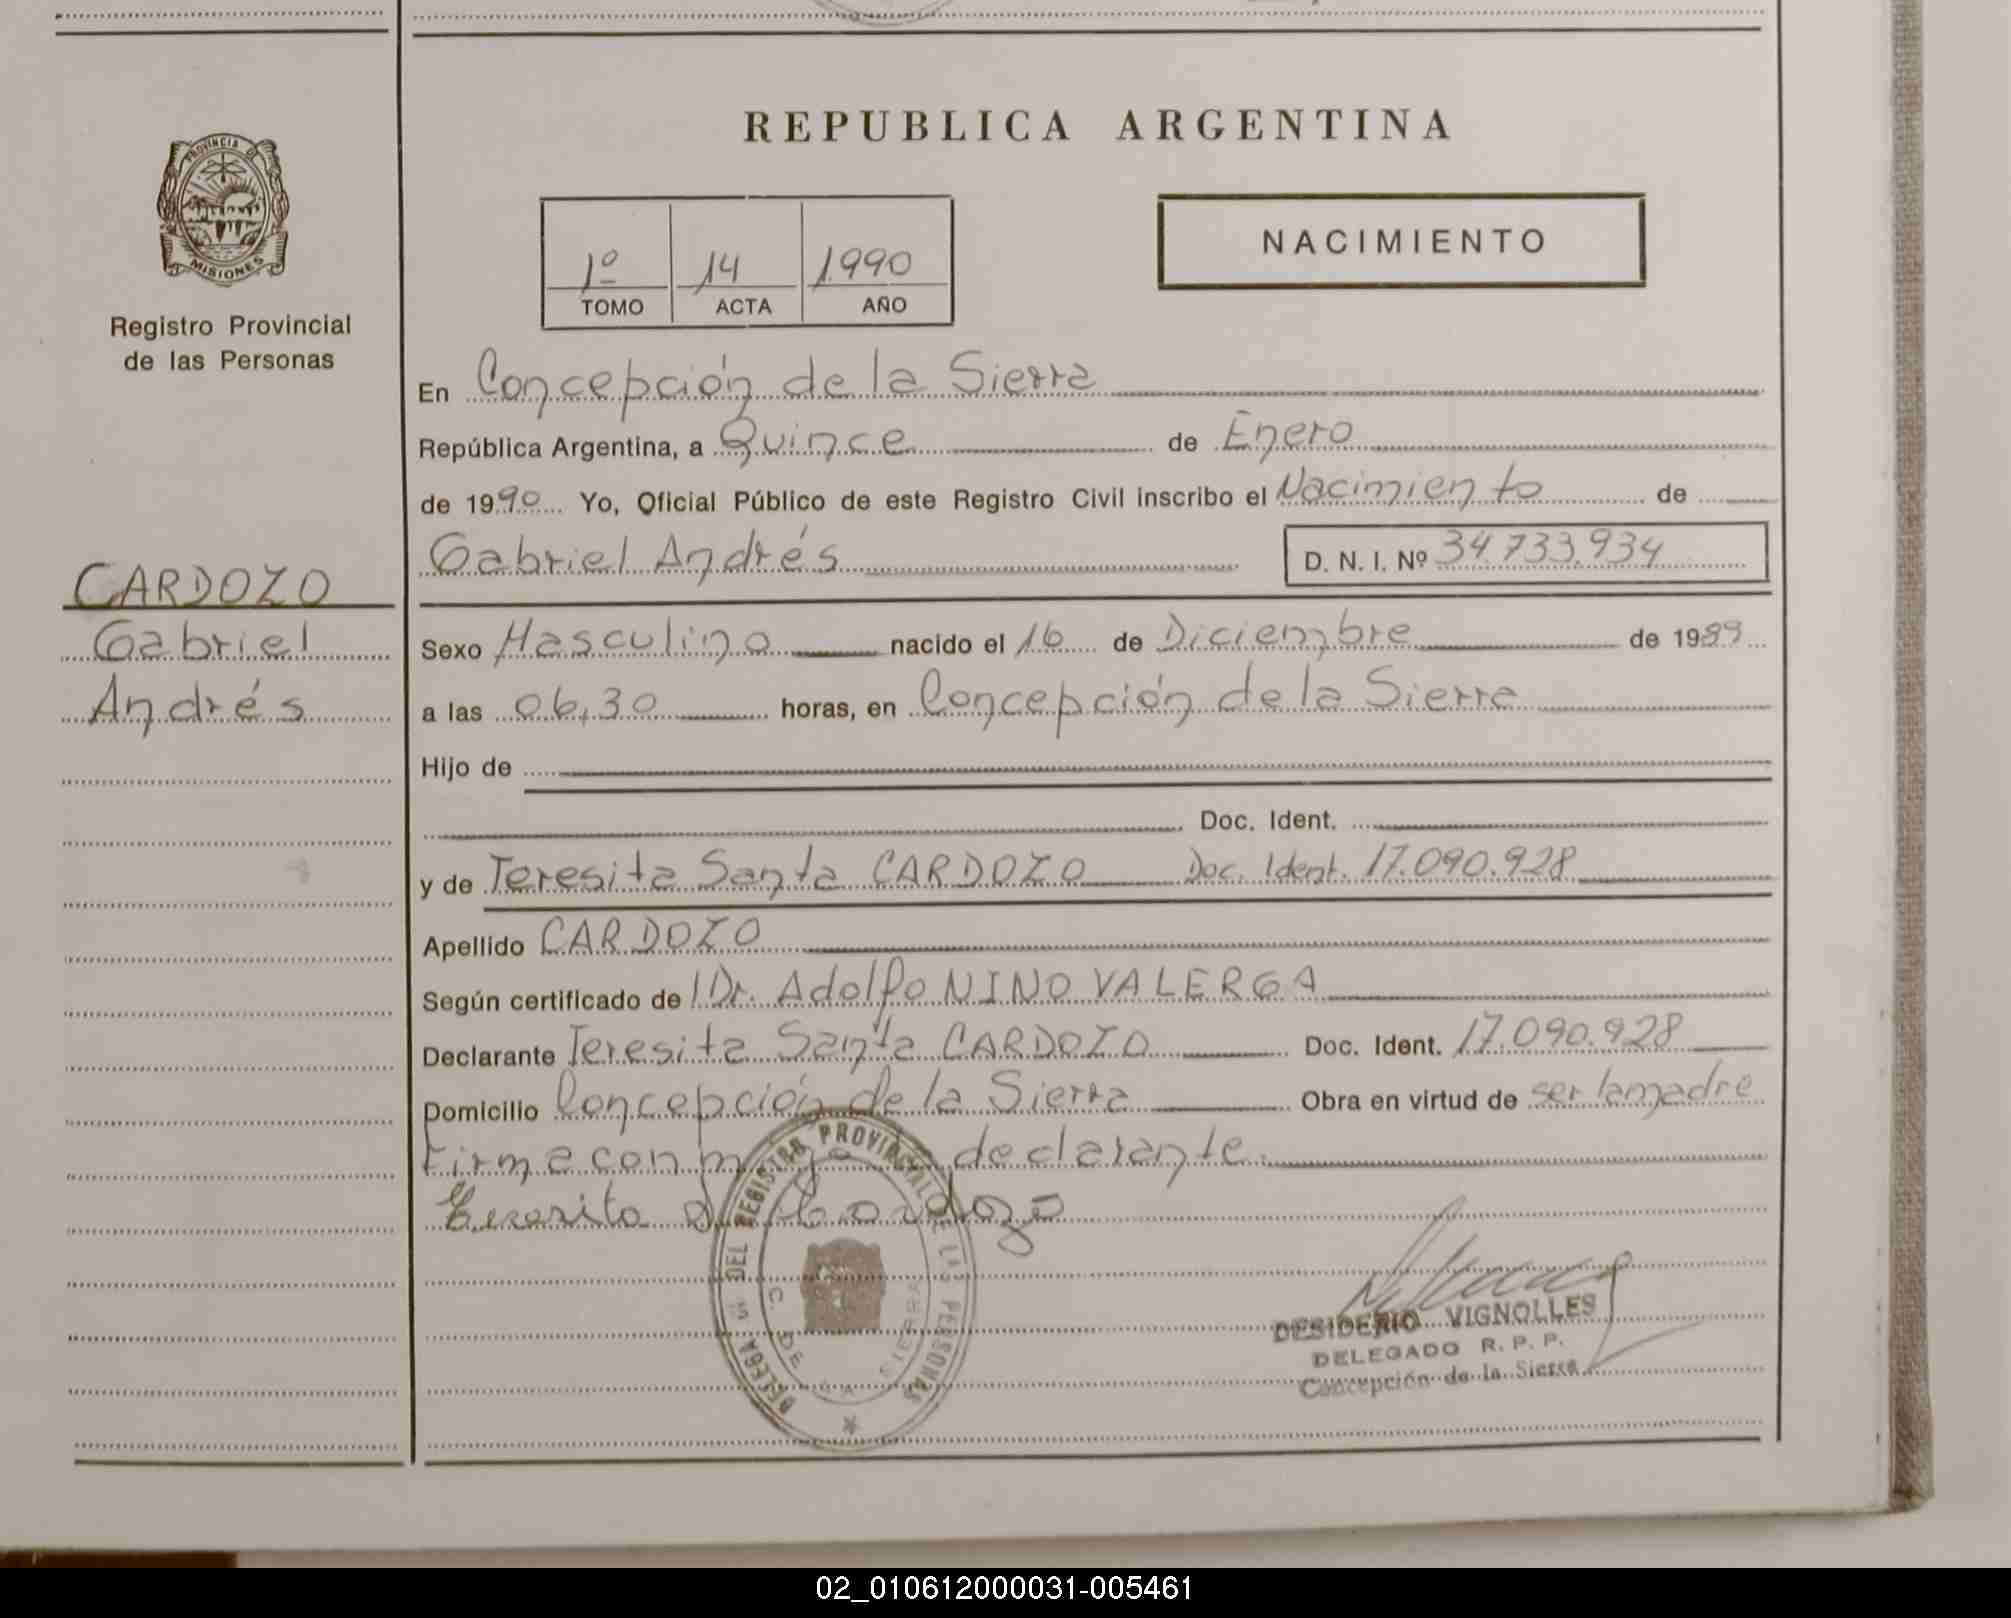 REPUBLICA ARGENTINA
PROVINCIA DE
MISIONES
Registro Provincial
de las Personas
1º 14 1.990
TOMO ACTA AÑO
NACIMIENTO
En Concepción de la Sierra
República Argentina, a Quince de Enero
de 1990 Yo, Oficial Público de este Registro Civil inscribo el Nacimiento de
Gabriel Andrés D. N. I. Nº 34.733.934
CARDOZO
Gabriel
Andrés
Sexo Masculino nacido el 16 de Diciembre de 1989
a las 06,30 horas, en Concepción de la Sierra
Hijo de
Doc. Ident.
y de Teresita Santa CARDOZO Doc. Ident. 17.090.928
Apellido CARDOZO
Según certificado de l Dr. Adolfo NINO VALERGA
Declarante Teresita Santa CARDOZO Doc. Ident. 17.090.928
Domicilio Concepción de la Sierra Obra en virtud de ser la madre
Firma conmigo declarante.
Teresita S. Cardozo
DELEGA DEL REGISTRO PROVINCIAL DE LAS PERSONAS
C. DE LA SIERRA
DESIDERIO VIGNOLLES
DELEGADO R. P. P.
Concepción de la Sierra
02_010612000031-005461